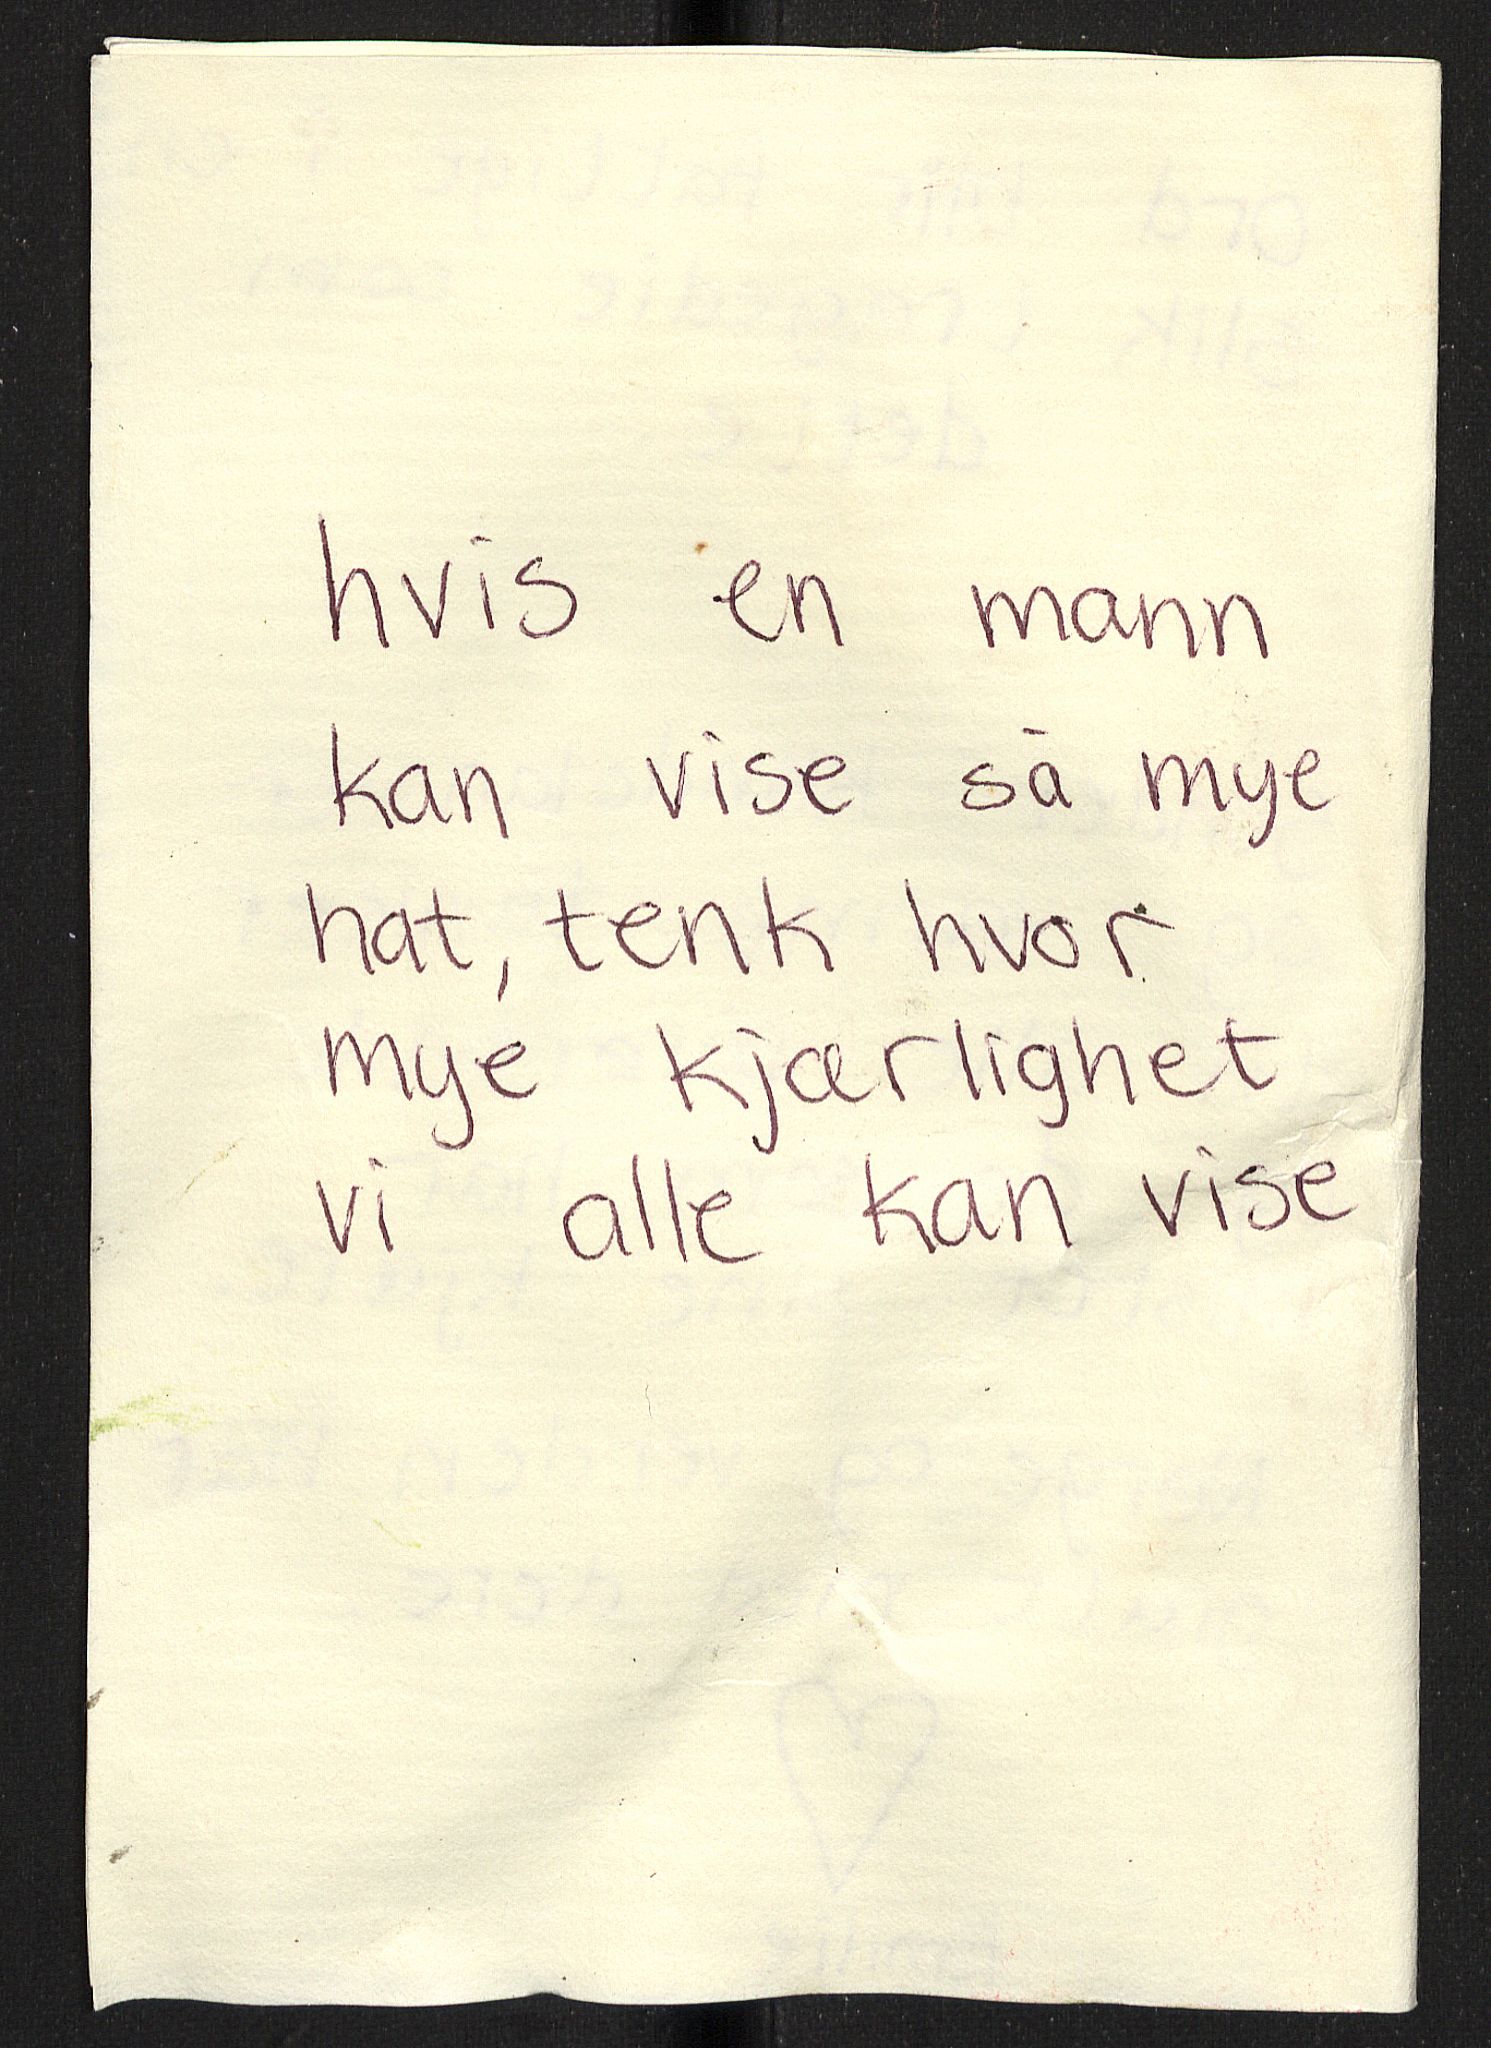 hvis en mann
kan vise så mye
hat, tenk hvor
mye kjærlighet
vi alle kan vise